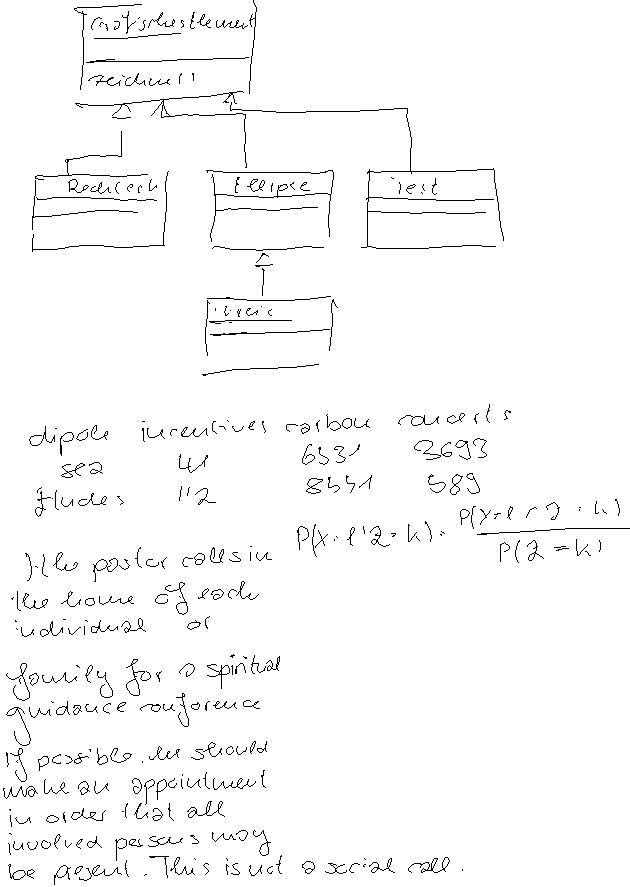 GrafischesElement
zeichnen()
Rechteck
Ellipse
Text
Kreis
dipole incentives carbon concerts
sea 41 6531 3693
Etudes 112 8551 589
P(X=l|Z=k)=P(X=l∩Z=k)/P(Z=k)
). the pastor calls in
the home of each
individual or
family for a spiritual
guidance conference
If possible, he should
make an appointment
in order that all
involved persons may
be present. This is not a social call.